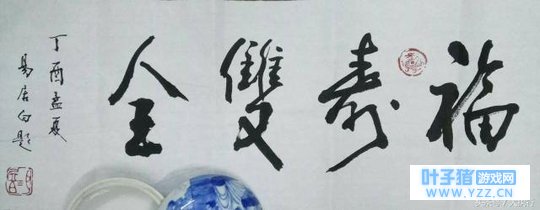 福壽雙全
丁酉孟夏
易居白題
叶子猪游戏网
www.YZZ.CN